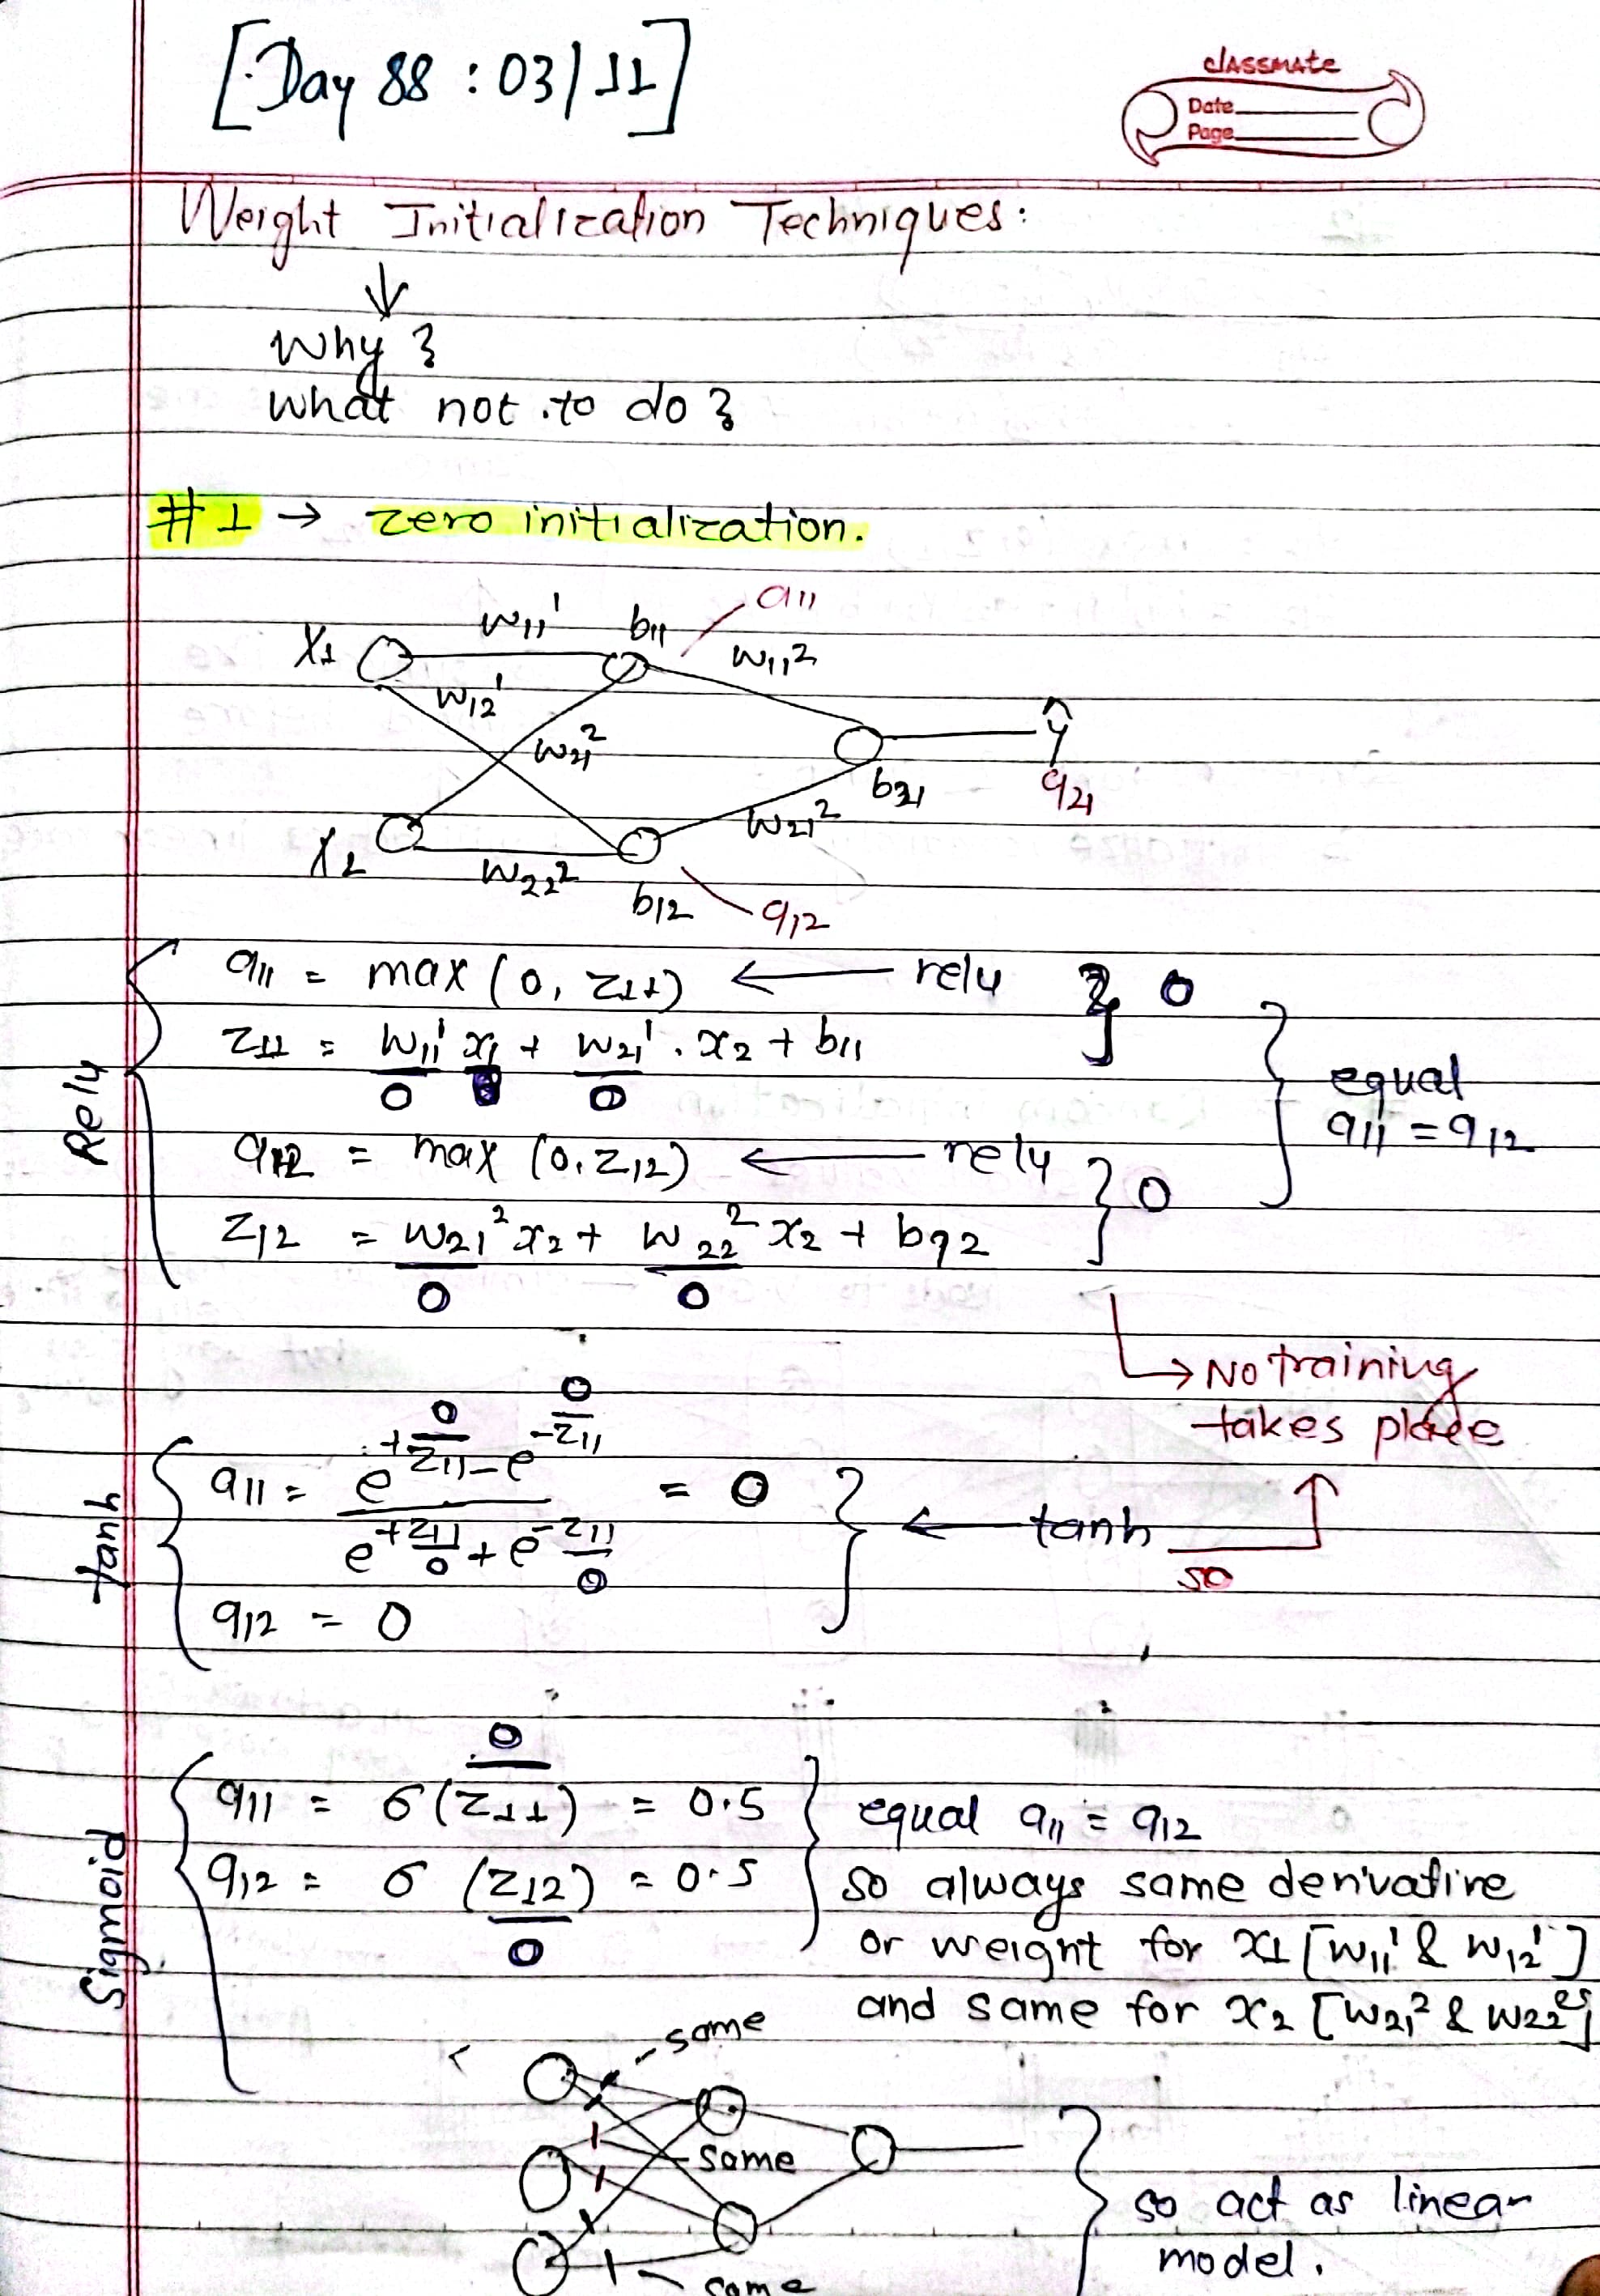 [Day 88 : 03/11]
classmate
Date
Page
Weight Initialization Techniques:
↓
Why ?
what not to do ?
#1 → zero initialization.
a11
w11¹ b11
X1 w11²
w12¹
ŷ
w21²
b21 a21
w21²
X2 w22²
b12 a12
Relu
a11 = max (0, z11) ← relu } 0
z11 = w11¹ x1 + w21¹ . x2 + b11
0 0
equal
a11 = a12
a12 = max (0, z12) ← relu } 0
z12 = w21² x2 + w22² x2 + b92
0 0
→ No training
takes place
tanh
0 0
a11 = e^+z11 - e^-z11 = 0
e^+z11 + e^-z11
0 0
← tanh so
a12 = 0
Sigmoid
0
a11 = σ(z11) = 0.5
a12 = σ (z12) = 0.5
0
equal a11 = a12
so always same derivative
or weight for x1 [w11¹ & w12¹]
and same for x2 [w21² & w22²]
same
same
same
so act as linear
model.